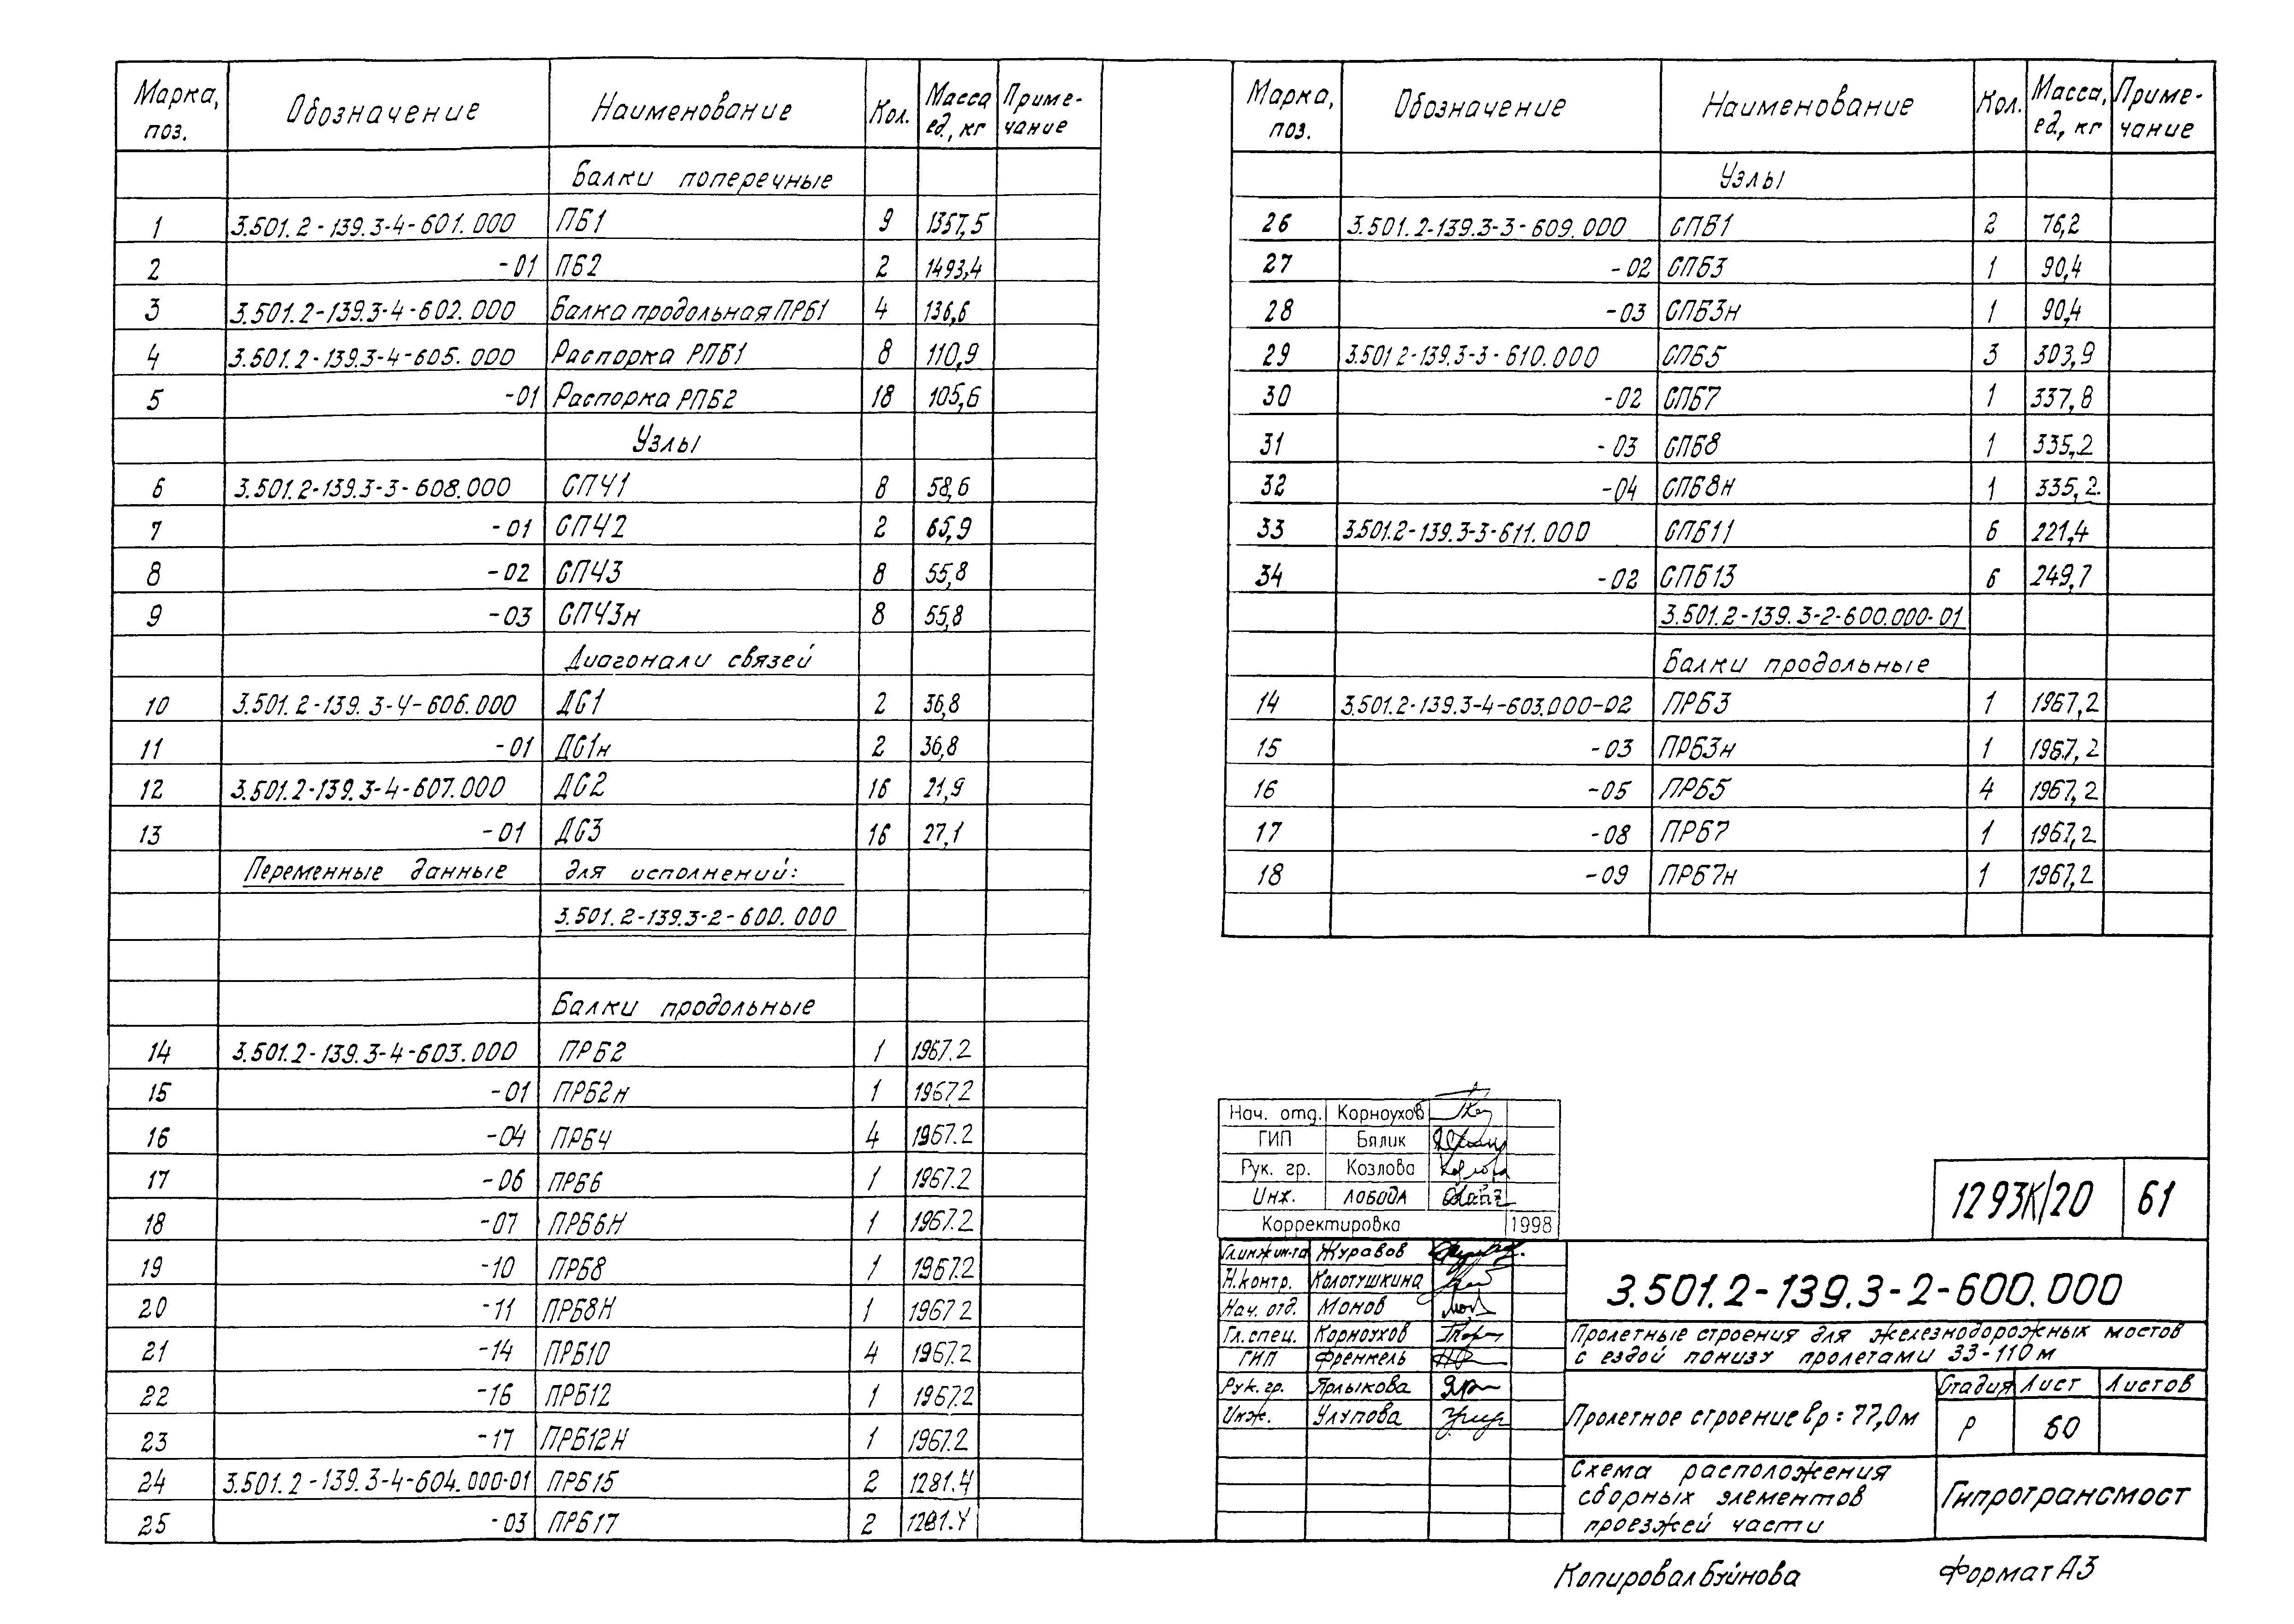 Марка, поз. Обозначение Наименование Кол. Масса ед., кг Приме-чание
Балки поперечные
1 3.501.2-139.3-4-601.000 ПБ1 9 1357,5
2 -01 ПБ2 2 1493,4
3 3.501.2-139.3-4-602.000 Балка продольная ПРБ1 4 136,6
4 3.501.2-139.3-4-605.000 Распорка РПБ1 8 110,9
5 -01 Распорка РПБ2 18 105,6
Узлы
6 3.501.2-139.3-3-608.000 СПЧ1 8 58,6
7 -01 СПЧ2 2 65,9
8 -02 СПЧ3 8 55,8
9 -03 СПЧ3н 8 55,8
Диагонали связей
10 3.501.2-139.3-4-606.000 ДС1 2 36,8
11 -01 ДС1н 2 36,8
12 3.501.2-139.3-4-607.000 ДС2 16 21,9
13 -01 ДС3 16 27,1
Переменные данные для исполнений:
3.501.2-139.3-2-600.000
Балки продольные
14 3.501.2-139.3-4-603.000 ПРБ2 1 1967.2
15 -01 ПРБ2н 1 1967.2
16 -04 ПРБ4 4 1967.2
17 -06 ПРБ6 1 1967.2
18 -07 ПРБ6Н 1 1967.2
19 -10 ПРБ8 1 1967.2
20 -11 ПРБ8Н 1 1967 2
21 -14 ПРБ10 4 1967.2
22 -16 ПРБ12 1 1967.2
23 -17 ПРБ12Н 1 1967.2
24 3.501.2-139.3-4-604.000-01 ПРБ15 2 1281.4
25 -03 ПРБ17 2 1281.4
Марка, поз. Обозначение Наименование Кол. Масса, ед., кг Приме-чание
Узлы
26 3.501.2-139.3-3-609.000 СПБ1 2 76,2
27 -02 СПБ3 1 90,4
28 -03 СПБ3н 1 90,4
29 3.501 2-139.3-3-610.000 СПБ5 3 303,9
30 -02 СПБ7 1 337,8
31 -03 СПБ8 1 335,2
32 -04 СПБ8н 1 335,2.
33 3.501.2-139.3-3-611.000 СПБ11 6 221,4
34 -02 СПБ13 6 249,7
3.501.2-139.3-2-600.000-01
Балки продольные
14 3.501.2-139.3-4-603.000-02 ПРБ3 1 1967,2
15 -03 ПРБ3н 1 1967,2
16 -05 ПРБ5 4 1967,2
17 -08 ПРБ7 1 1967,2
18 -09 ПРБ7н 1 1967,2
Нач. отд. Корноухов
ГИП Бялик
Рук. гр. Козлова
Инж. ЛОБОДА
Корректировка 1998
1293К/20 61
Гл.инж.ин-та Журавов
Н.контр. Колотушкина
Нач. отд. Монов
Гл.спец. Корноухов
ГИП Френкель
Рук.гр. Ярлыкова
Инж. Улупова
3.501.2-139.3-2-600.000
Пролетные строения для железнодорожных мостов
с ездой понизу пролетами 33-110м
Пролетное строение ℓр=77,0м
Стадия Лист Листов
Р 60
Схема расположения
сборных элементов
проезжей части
Гипротрансмост
Копировал Буйнова Формат А3